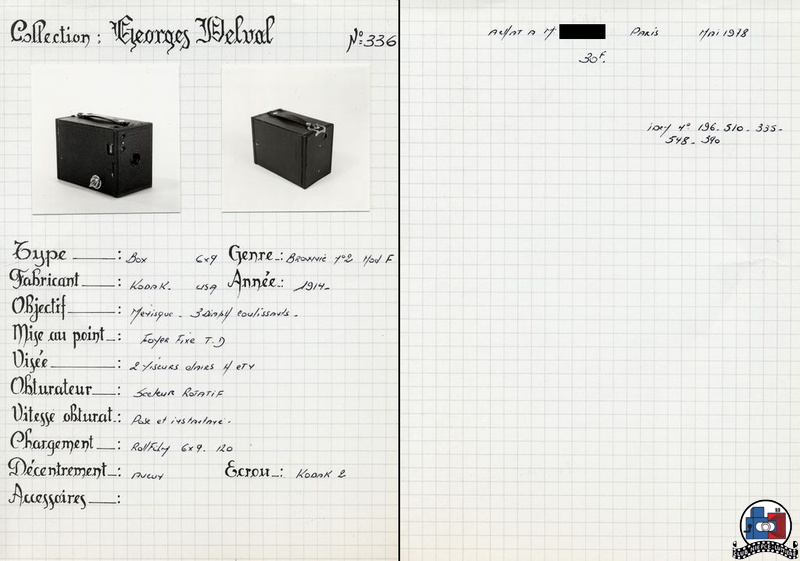 Collection : Georges Delval N°: 336
Type : Box 6x9 Genre : Brownie n°2 Mod F
Fabricant : Kodak. USA Année : 1914.
Objectif : Menisque. 3 diaph coulissants.
Mise au point : Foyer Fixe T.D
Visée : 2 viseurs clairs H et V
Obturateur : Secteur Rotatif
Vitesse obturat. : Pose et instantané.
Chargement : Rollfilm 6x9. 120
Décentrement : Aucun Ecrou : Kodak 2
Accessoires :
Achat a M Paris Mai 1978
30F.
n° 196. 510. 335.
548. 340